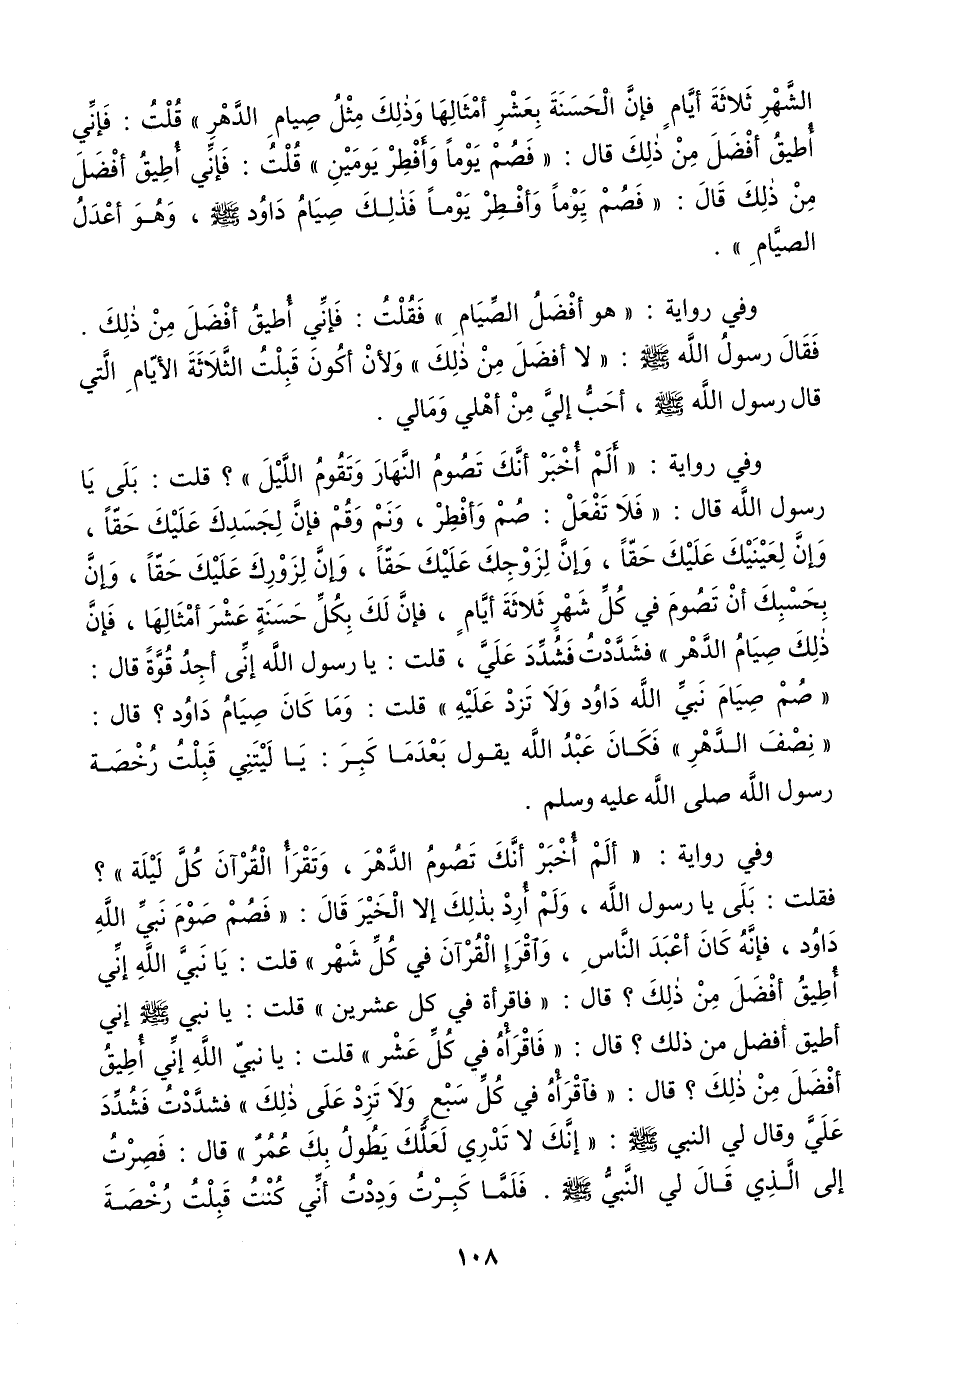 الشَّهْرِ ثَلاثَةَ أيَّامٍ فإنَّ الْحَسَنَةَ بِعَشْرِ أمْثَالِهَا وَذٰلِكَ مِثْلُ صِيامِ الدَّهْرِ » قُلْتُ : فَإنِّي
أُطيقُ أفْضَلَ مِنْ ذٰلِكَ قال : « فَصُمْ يَوْماً وَأَفْطِرْ يَومَيْنِ » قُلْتُ : فَإنِّي أُطِيقُ أفْضَلَ
مِنْ ذٰلِكَ قَالَ : « فَصُمْ يَوْماً وَأفْطِرْ يَوْماً فَذٰلِكَ صِيَامُ دَاوُد ﷺ ، وَهُوَ أعْدَلُ
الصيَّامِ » .
وفي رواية : « هو أفْضَلُ الصِّيَامِ » فَقُلْتُ : فَإنِّي أُطيقُ أفْضَلَ مِنْ ذٰلِكَ .
فَقَالَ رسولُ اللَّه ﷺ : « لا أفضَلَ مِنْ ذٰلِكَ » وَلأنْ أكُونَ قَبِلْتُ الثَّلاثَةَ الأيّامِ الَّتي
قال رسول اللَّه ﷺ ، أحَبُّ إليَّ مِنْ أهْلي وَمَالي .
وفي رواية : « أَلَمْ أُخْبَرْ أنَّكَ تَصُومُ النَّهَارَ وَتَقُومُ اللَّيْلَ » ؟ قلت : بَلَى يَا
رسول اللَّه قال : « فَلَا تَفْعَلْ : صُمْ وَأفْطِرْ ، وَنَمْ وَقُمْ فإنَّ لِجَسَدِكَ عَلَيْكَ حَقّاً ،
وَإنَّ لِعَيْنَيْكَ عَلَيْكَ حَقّاً ، وَإنَّ لِزَوْجِكَ عَلَيْكَ حَقّاً ، وَإنَّ لِزَوْرِكَ عَلَيْكَ حَقّاً ، وَإنَّ
بِحَسْبِكَ أنْ تَصُومَ في كُلِّ شَهْرٍ ثَلاثَةَ أيَّامٍ ، فإنَّ لَكَ بِكُلِّ حَسَنَةٍ عَشْرَ أمْثَالِهَا ، فَإنَّ
ذٰلِكَ صِيَامُ الدَّهْر » فشَدَّدْتُ فَشُدِّدَ عَلَيَّ ، قلت : يا رسول اللَّه إنِّى أجِدُ قُوَّةً قال :
« صُمْ صِيَامَ نَبيِّ اللَّه دَاوُد وَلاَ تَزدْ عَلَيْهِ » قلت : وَمَا كَانَ صِيَامُ دَاوُد ؟ قال :
« نِصْفَ الدَّهْرِ » فَكَانَ عَبْدُ اللَّه يقول بَعْدَمَا كَبِرَ : يَا لَيْتَنِي قَبِلْتُ رُخْصَةَ
رسول اللَّه صلى اللَّه عليه وسلم .
وفي رواية : « ألَمْ أُخْبَرْ أنَّكَ تَصُومُ الدَّهْرَ ، وَتَقْرَأُ الْقُرْآنَ كُلَّ لَيْلَة » ؟
فقلت : بَلَى يا رسول اللَّه ، وَلَمْ أُرِدْ بذٰلِكَ إلا الْخَيْرَ قَالَ : « فَصُمْ صَوْمَ نَبيِّ اللَّهِ
دَاوُد ، فإنَّهُ كَانَ أعْبَدَ النَّاسِ ، وَاقْرَإِ الْقُرْآنَ في كُلِّ شَهْر » قلت : يَا نَبيَّ اللَّهِ إنِّي
أُطِيقُ أفْضَلَ مِنْ ذٰلِكَ ؟ قال : « فاقرأة في كل عشرين » قلت : يا نبي ﷺ إني
أطيق أفضل من ذلك ؟ قال : « فَاقْرَأْهُ في كُلِّ عَشْر » قلت : يا نبيّ اللَّهِ إنِّي أُطِيقُ
أفْضَلَ مِنْ ذٰلِكَ ؟ قال : « فاقْرَأْهُ في كُلِّ سَبْعٍ وَلاَ تَزِدْ عَلَى ذٰلِكَ » فشدَّدْتُ فَشُدِّدَ
عَلَيَّ وقال لي النبي ﷺ : « إنَّكَ لا تَدْرِي لَعَلَّكَ يَطُولُ بِكَ عُمُرٌ » قال : فَصِرْتُ
إلى الَّذِي قَالَ لي النَّبيُّ ﷺ . فَلَمَّا كَبِرْتُ وَدِدْتُ أنِّي كُنْتُ قَبِلْتُ رُخْصَةَ
١٠٨